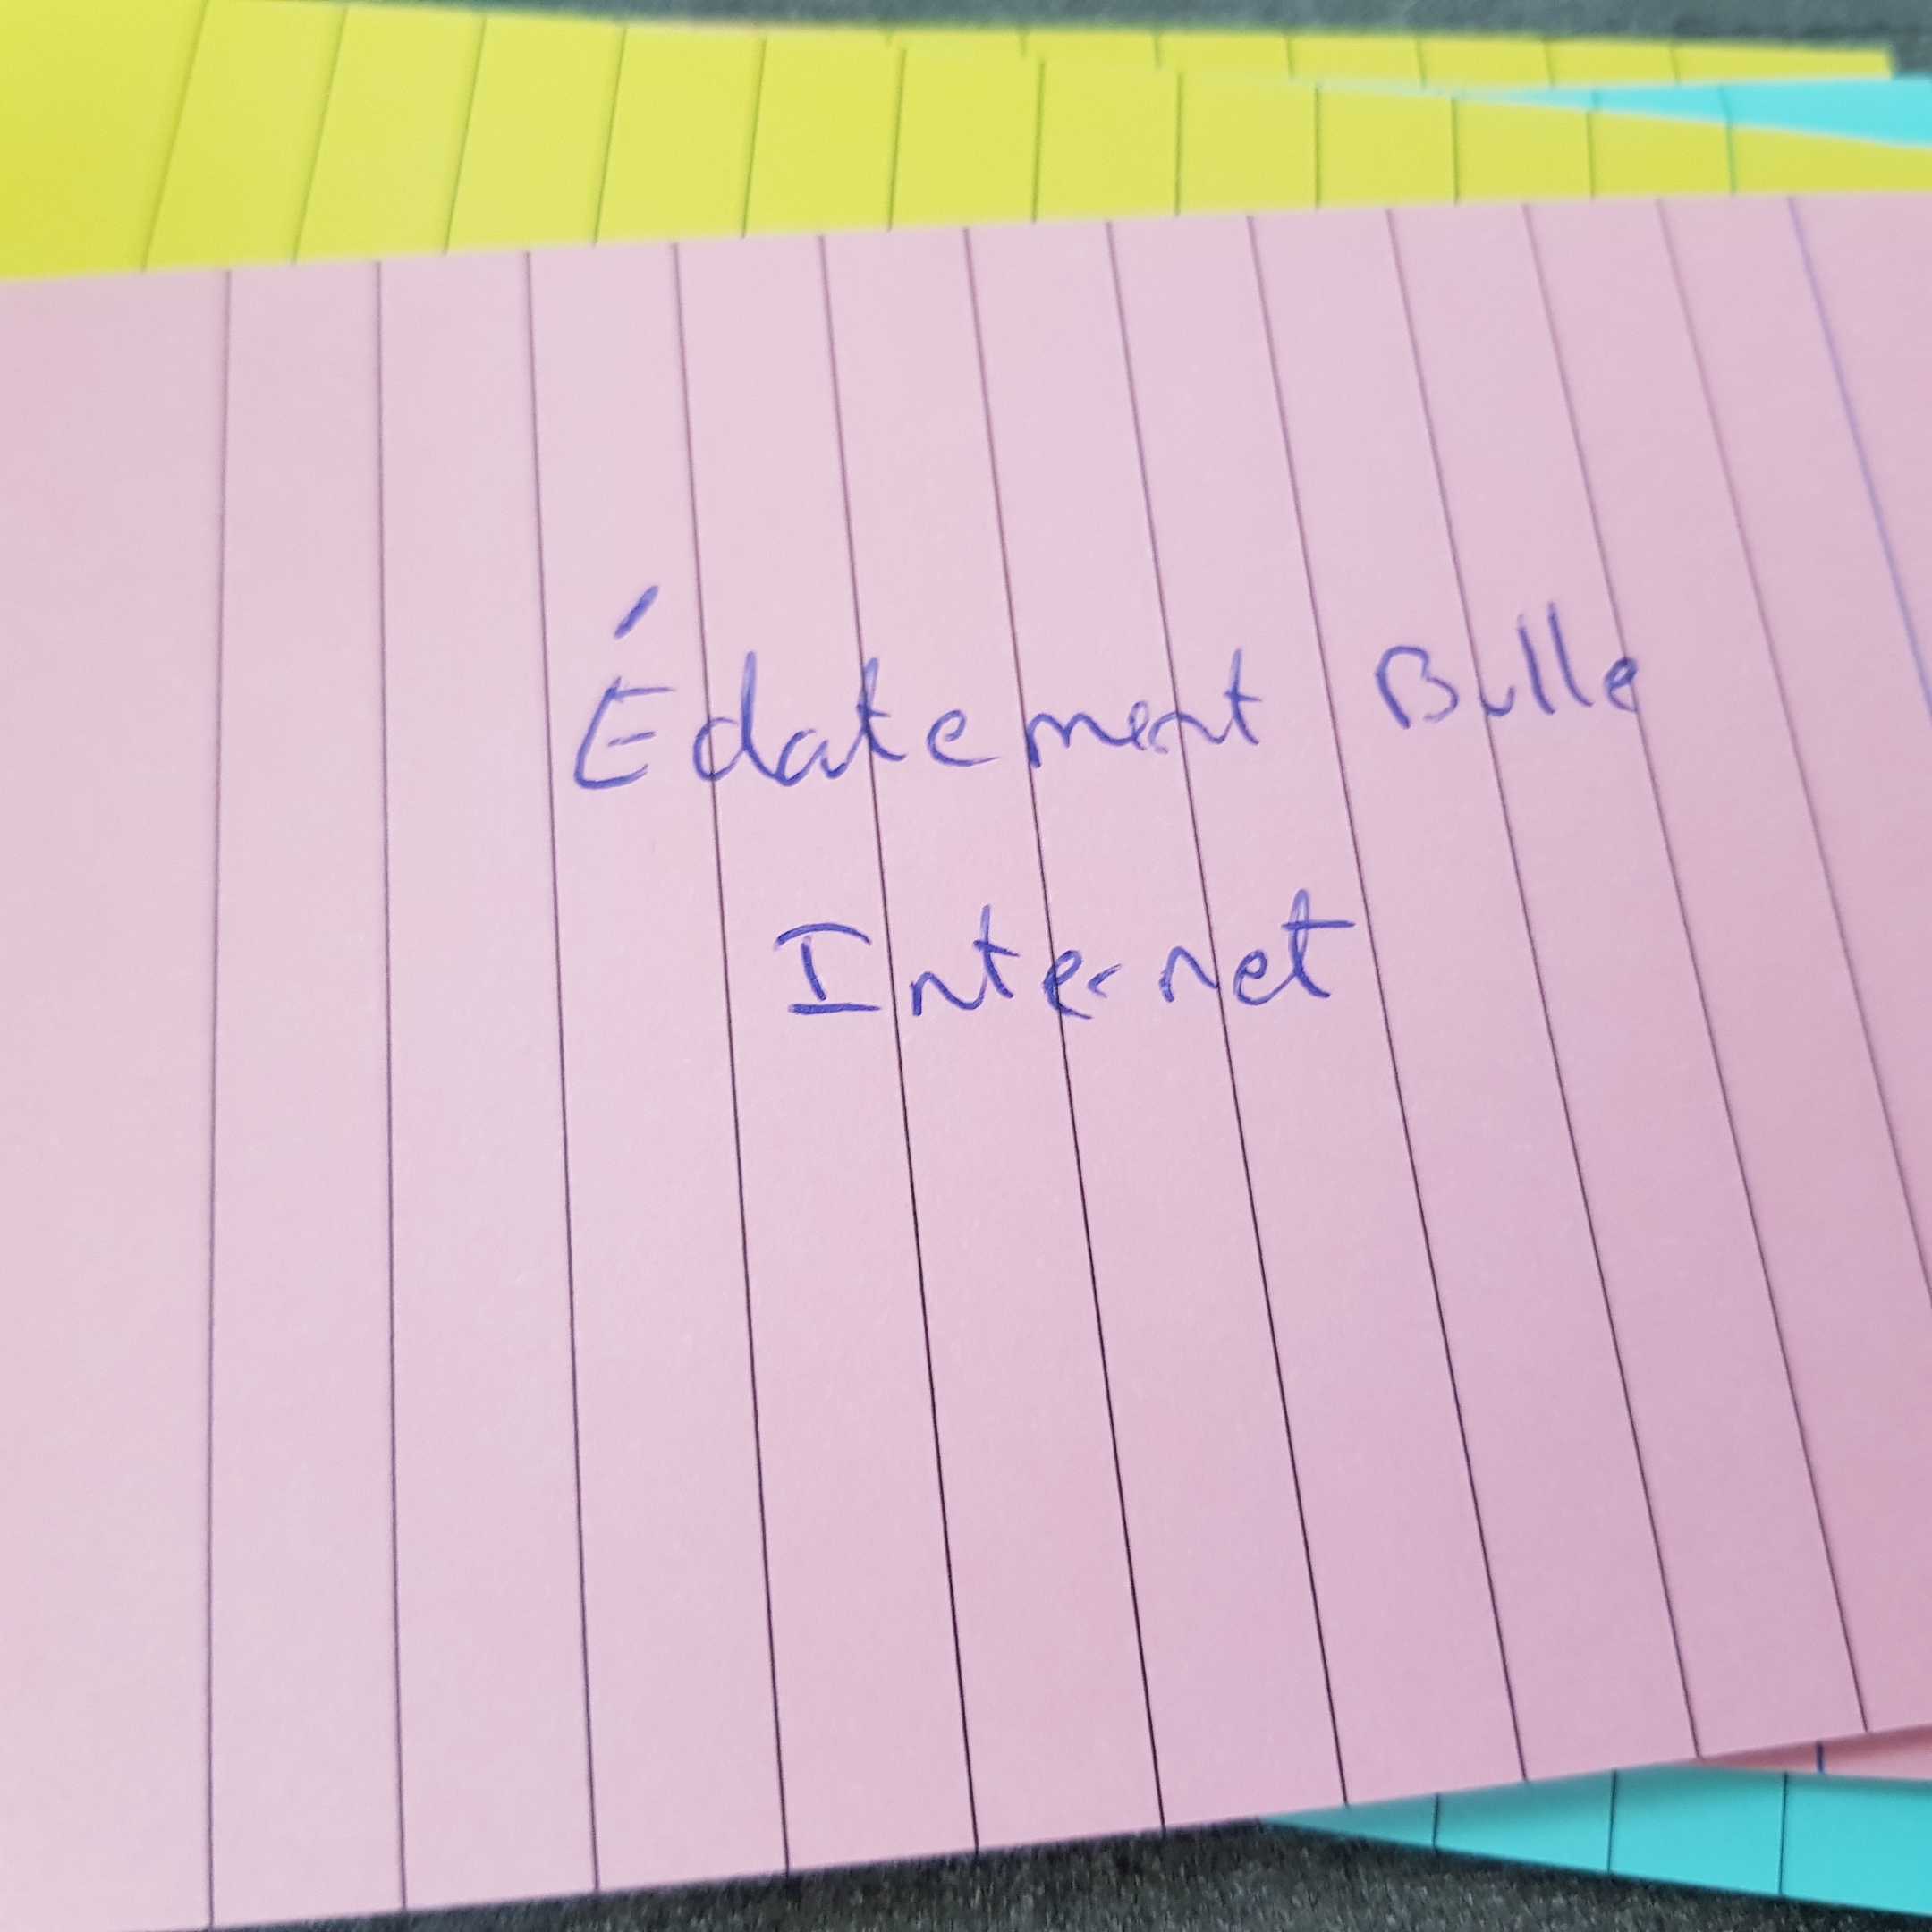 Éclatement Bulle
Internet